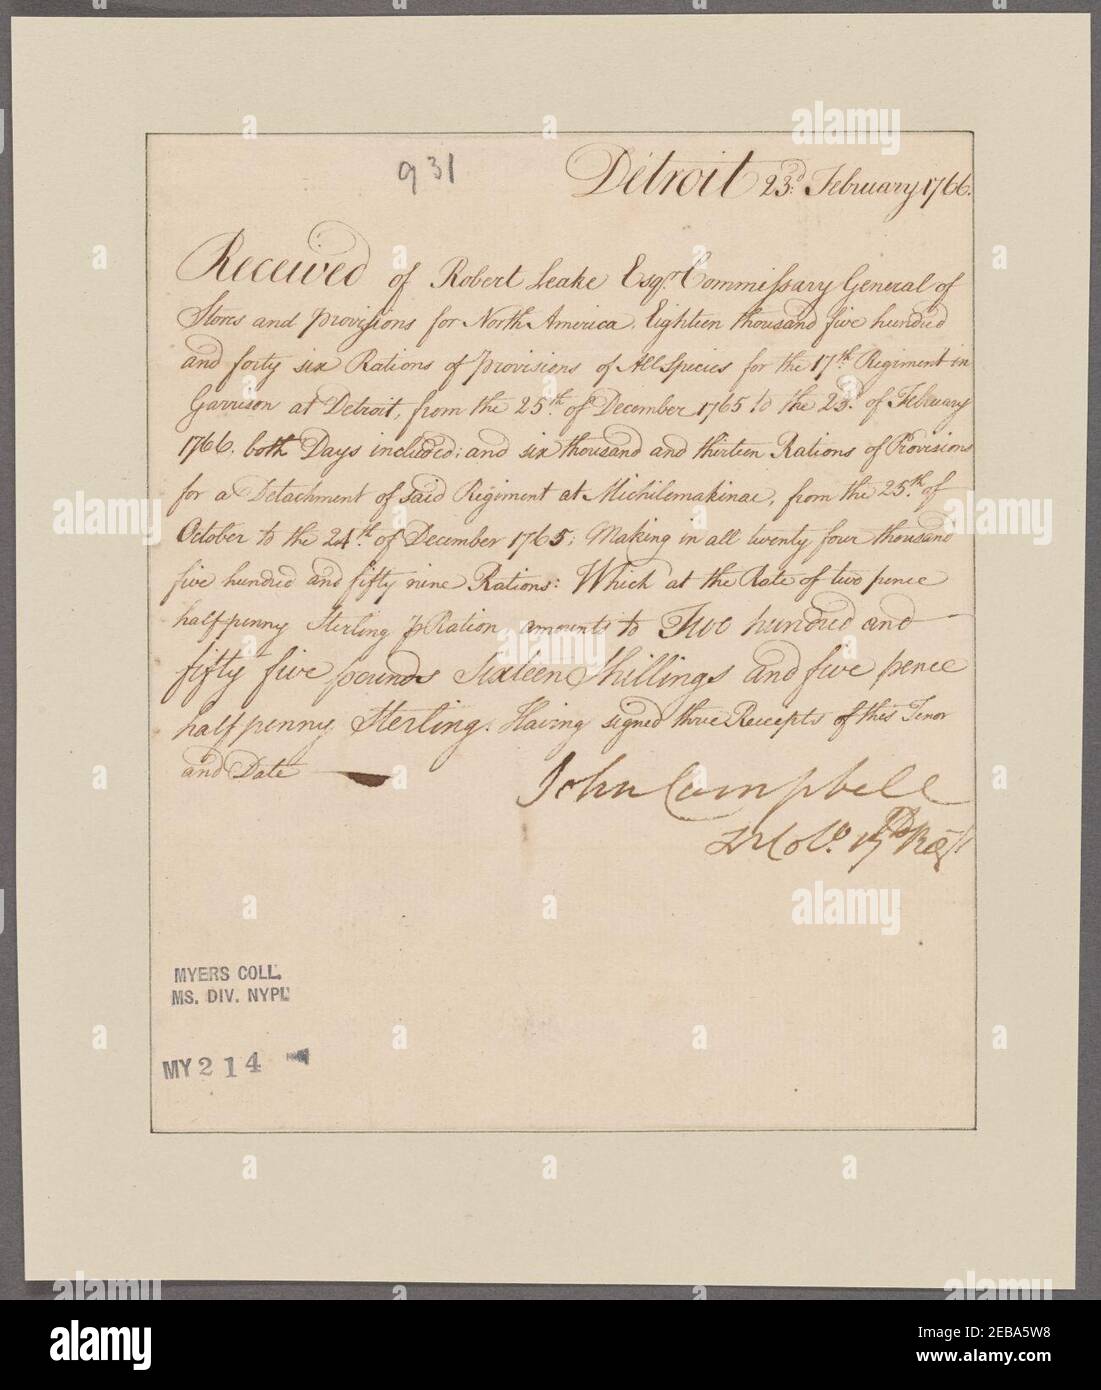 931
Detroit 23d. February 1766.
Received of Robert Leake Esqr. Commissary General of
Stores and provisions for North America, Eighteen thousand five hundred
and forty six Rations of provisions of All Species for the 17th. Regiment in
Garrison at Detroit, from the 25th. of December 1765 to the 23d. of February
1766, both Days included; and six thousand and thirteen Rations of Provisions
for a Detachment of said Regiment at Michilemakinac, from the 25th. of
October to the 24th. of December 1765; Making in all twenty four thousand
five hundred and fifty nine Rations: Which at the Rate of two pence
half penny Sterling ⅌ Ration, amounts to Two hundred and
fifty five pounds Sixteen Shillings and five pence
half penny Sterling. Having signed three Receipts of this Tenor
and Date
John Campbell
Lt Col. 17th Regt
MYERS COLL.
MS. DIV. NYPL
MY 214
alamy
Image ID: 2EBA5W8
www.alamy.com